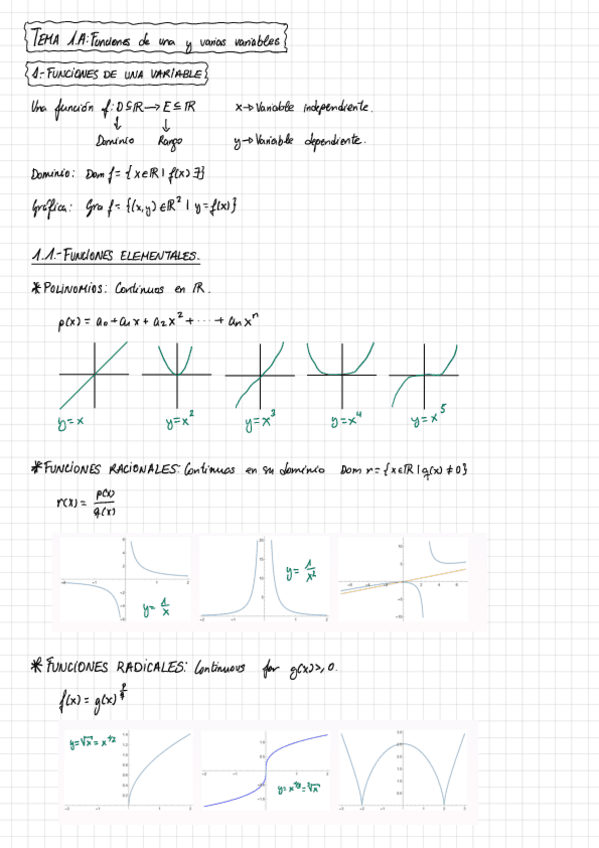 TEMA 1.A: Funciones de una y varias variables
1.- FUNCIONES DE UNA VARIABLE
Una función f: D⊆ℝ → E⊆ℝ x→ Variable independiente.
↓ ↓
Dominio Rango y→ Variable dependiente.
Dominio: Dom f = {x∈ℝ | f(x) ∃}
Gráfica: Gra f = {(x,y)∈ℝ² | y=f(x)}
1.1.- FUNCIONES ELEMENTALES.
* POLINOMIOS: Continuas en ℝ.
p(x) = a₀ + a₁x + a₂x² + ... + aₙxⁿ
y=x y=x² y=x³ y=x⁴ y=x⁵
* FUNCIONES RACIONALES: Continuas en su dominio Dom r = {x∈ℝ | q(x) ≠ 0}
r(x) = p(x)/q(x)
y = 1/x y = 1/x²
* FUNCIONES RADICALES: Continuous for g(x)≥0.
f(x) = g(x)^(p/q)
y=√x = x^(1/2) y = x^(1/3) = ∛x